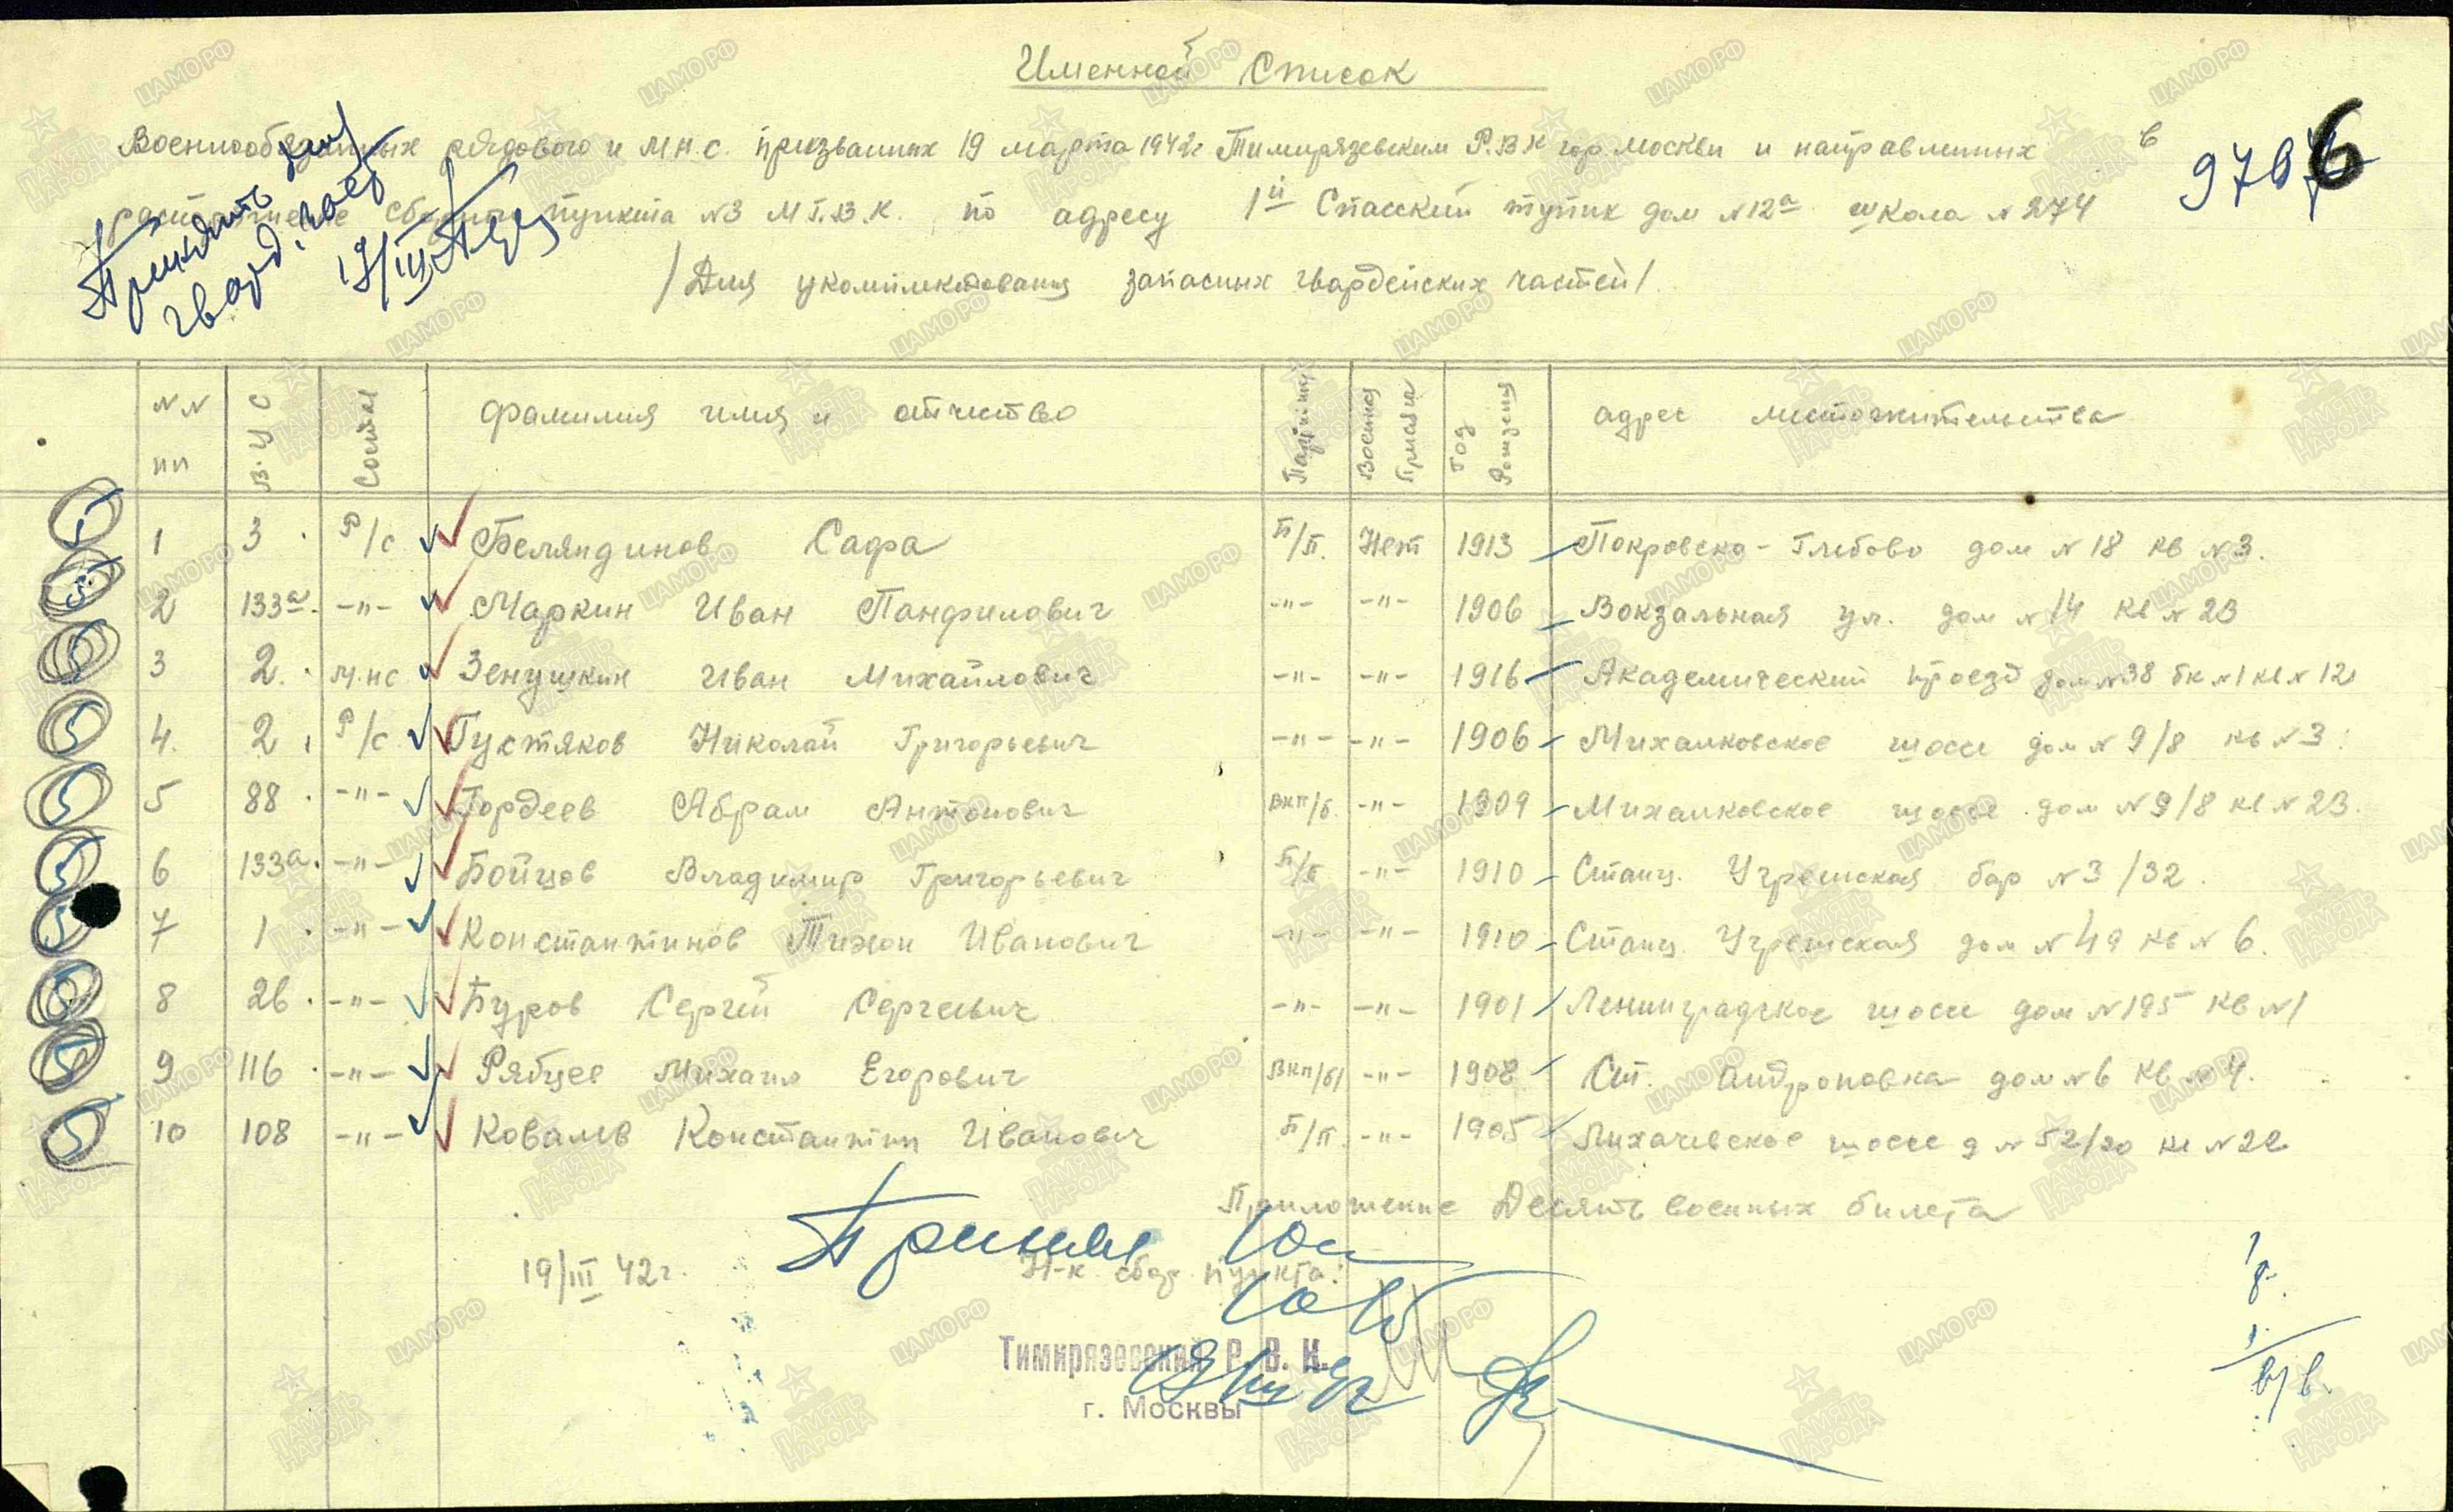 Именной Список
Военнообязанных рядового и м.н.с. призванных 19 марта 1942г Тимирязевским Р.В.К гор. Москвы и направленных в
распоряжение сборного пункта №3 М.Г.В.К. по адресу 1й Спасский тупик дом №12а школа №274
/Для укомплектования запасных гвардейских частей/
Принять для
гвард. част
19/III
№№ пп В.У.С Состав Фамилия имя и отчество Партийн. Военная Год Рождения адрес местожительства
1 3 Р/с Беляндинов Сафа Б/П. Нет 1913 Покровско-Глебово дом №18 кв №3.
2 133а -"- Маркин Иван Панфилович -"- -"- 1906 Вокзальная ул. дом №14 кв №23
3 2. м.нс Зенушкин Иван Михайлович -"- -"- 1916 Академический проезд дом №38 бк №1 кв №12
4. 2 Р/с Густяков Николай Григорьевич -"- -"- 1906 Михалковское шоссе дом №9/8 кв №3
5 88 -"- Гордеев Абрам Антонович ВКП/б. -"- 1909 Михалковское шоссе дом №9/8 кв №23.
6 133а. -"- Бойцов Владимир Григорьевич Б/П -"- 1910 Станц. Угрешская бар №3/32.
7 1 -"- Константинов Тихон Иванович -"- -"- 1910 Станц. Угрешская дом №49 кв №6.
8 26 -"- Буров Сергей Сергеевич -"- -"- 1901 Ленинградское шоссе дом №195 кв №1
9 116 -"- Рябцев Михаил Егорович ВКП/б/ -"- 1908 Ст. Андроновка дом №6 кв №4.
10 108 -"- Ковалев Константин Иванович Б/П. -"- 1905 Лихачевское шоссе д №52/20 кв №22
Приложение Десять военных билета
Принял 10
19/III 42г. Н-к сбор пункта:
Тимирязевский Р. В. К.
г. Москвы